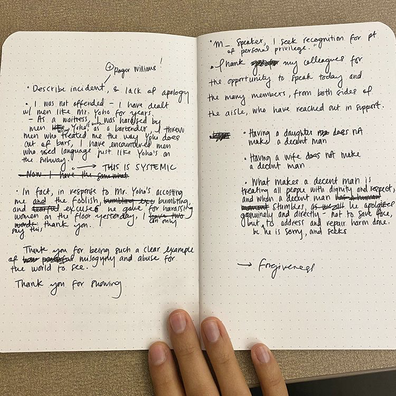 Roger Williams!
• Describe incident, & lack of apology
• I was not offended - I have dealt
w/ men like Mr. Yoho for years.
- As a waitress, I was harassed by
men Yoho's as a bartender I threw
men who treated me the way Yoho does
out of bars, I have encountered men
who used language just like Yoho's on
the subway.
→ THIS IS SYSTEMIC
• In fact, in response to Mr. Yoho's accosting
me and the foolish, bumbling,
and excuse he gave for harassing
women on the floor yesterday, I can only
say this thank you.
Thank you for being such a clear example
of misogyny and abuse for
the world to see.
Thank you for showing
• M_ Speaker, I seek recognition for pt
of personal privilege.
• Thank my colleagues for
the opportunity to speak today and
the many members, from both sides of
the aisle, who have reached out in support.
• Having a daughter does not
make a decent man
• Having a wife does not make
a decent man
• What makes a decent man is
treating all people with dignity and respect,
and when a decent man
stumbles, he apologizes
genuinely and directly - not to save face,
but to address and repair harm done.
he is sorry, and seeks
→ Forgiveness